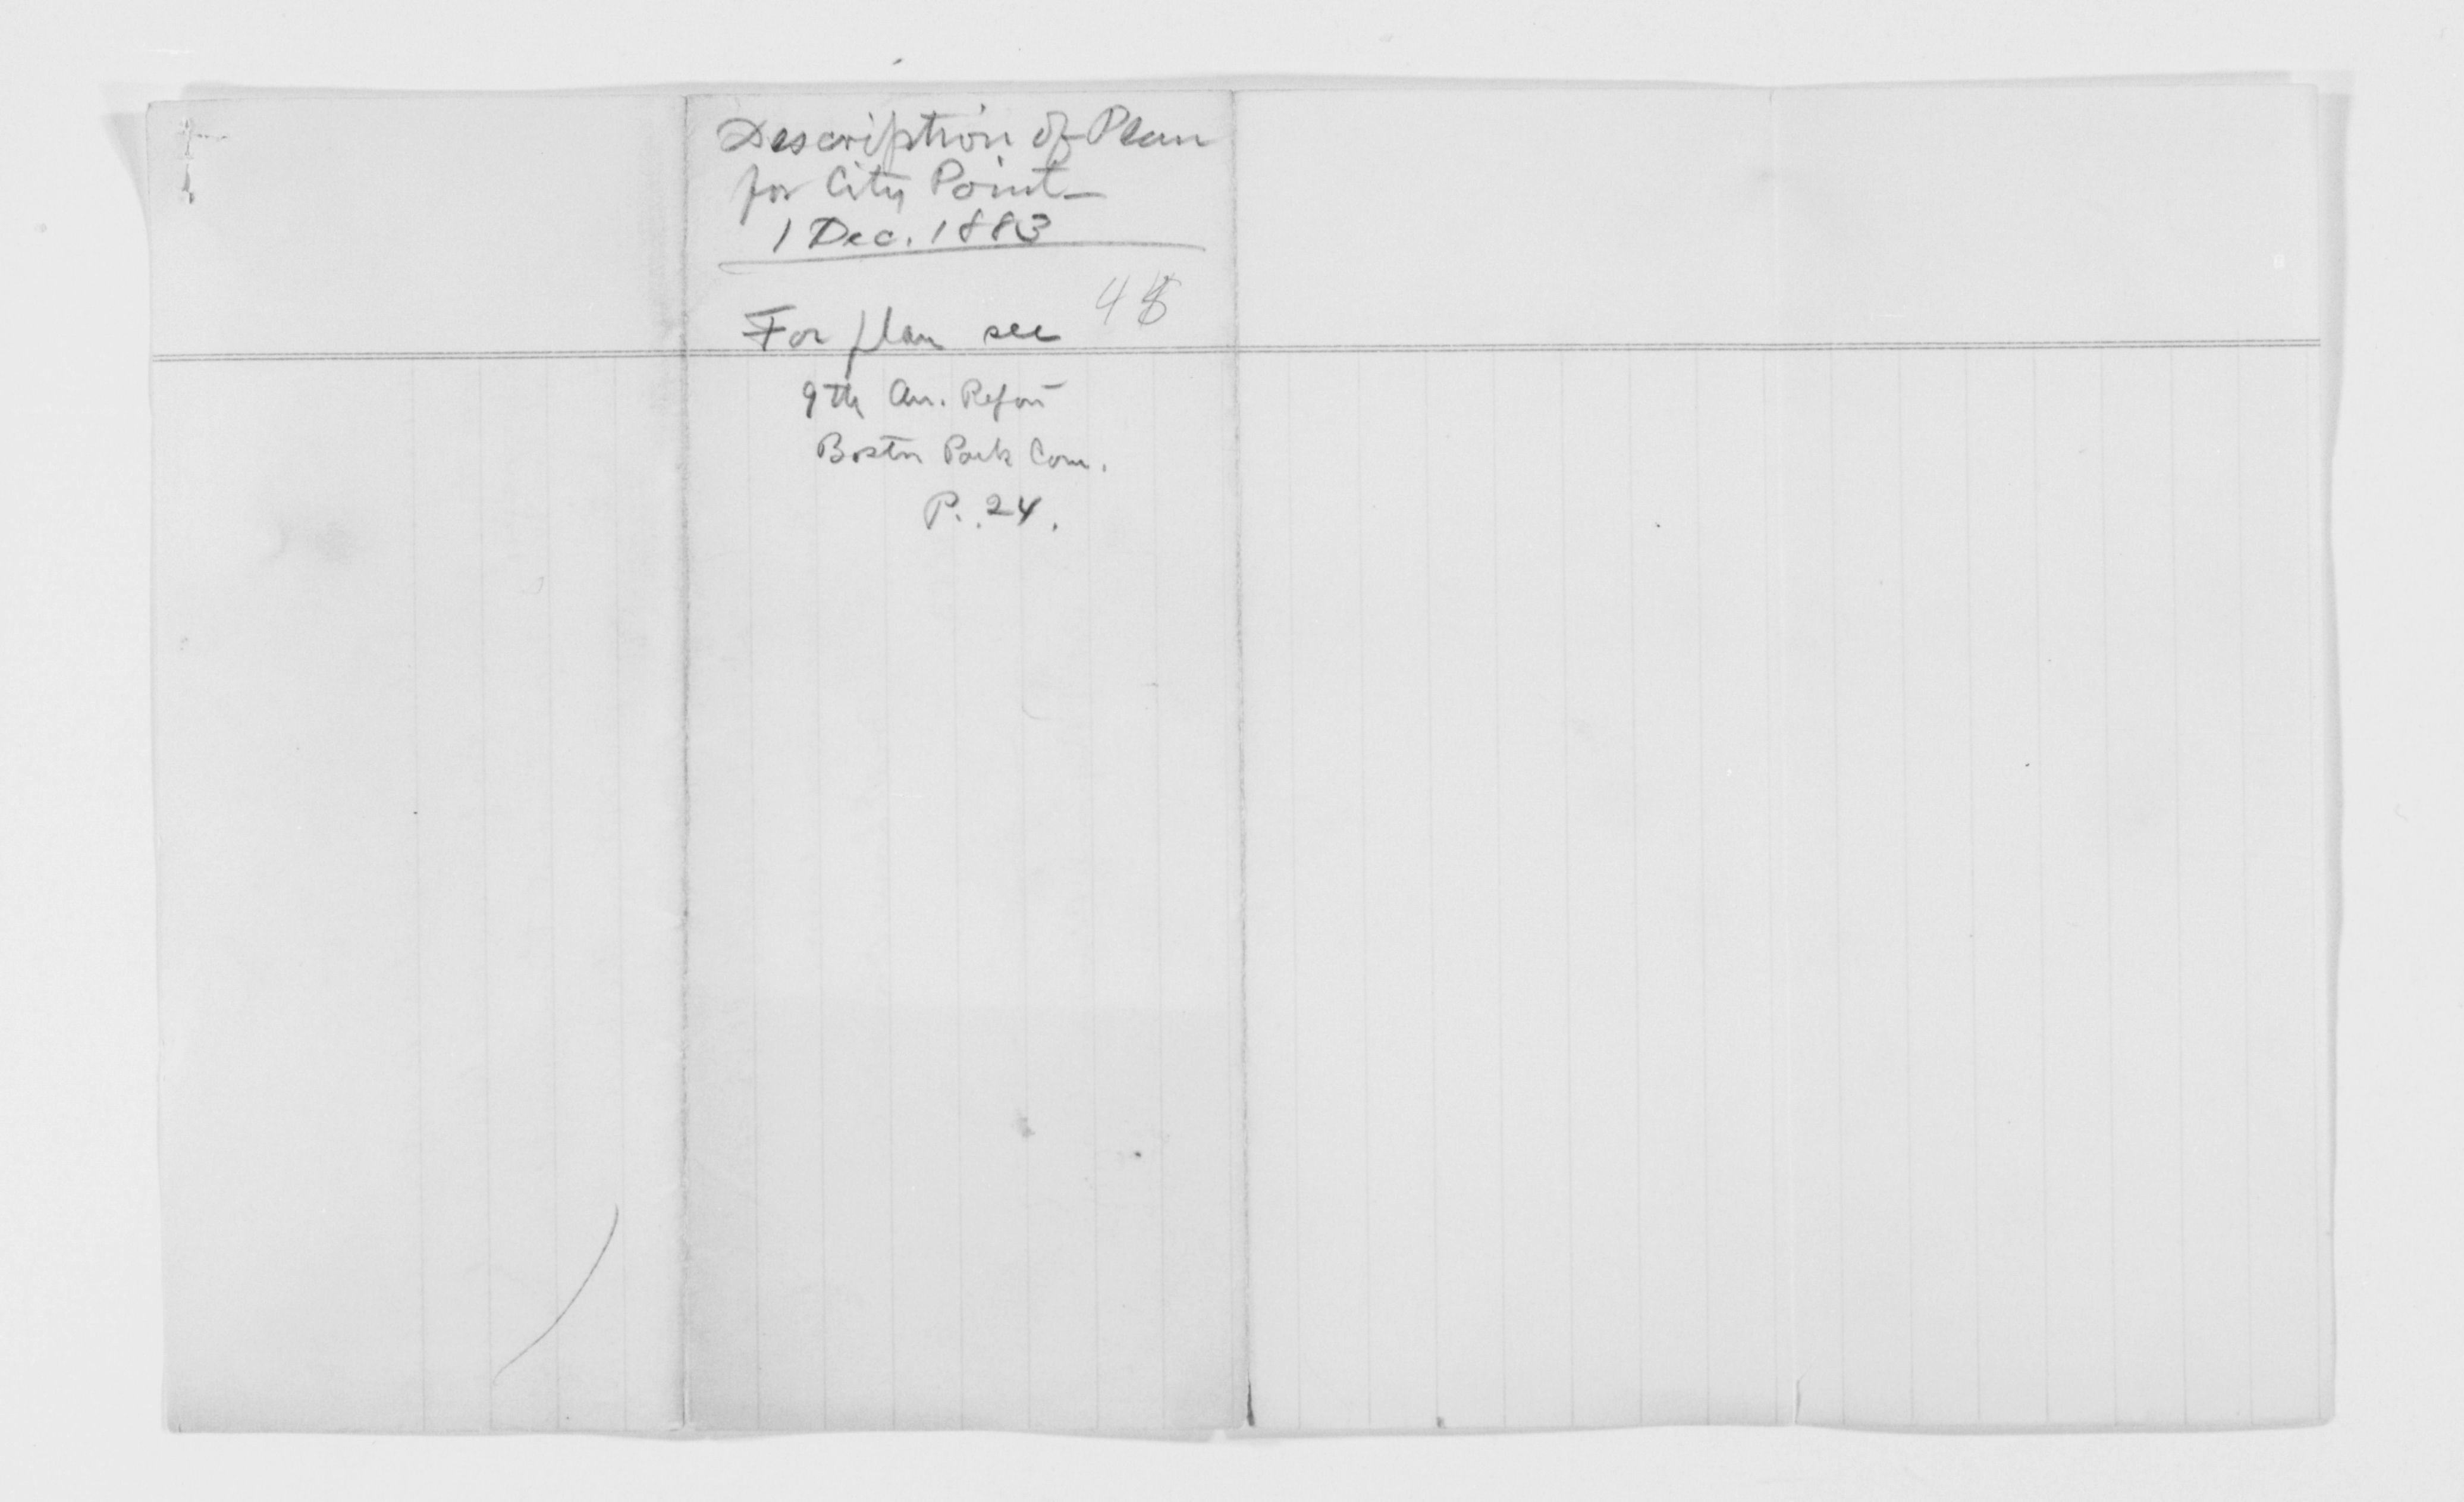 Description of Plan
for City Point
1 Dec. 1883
For plan see
9th An. Report
Boston Park Com.
P. 24.